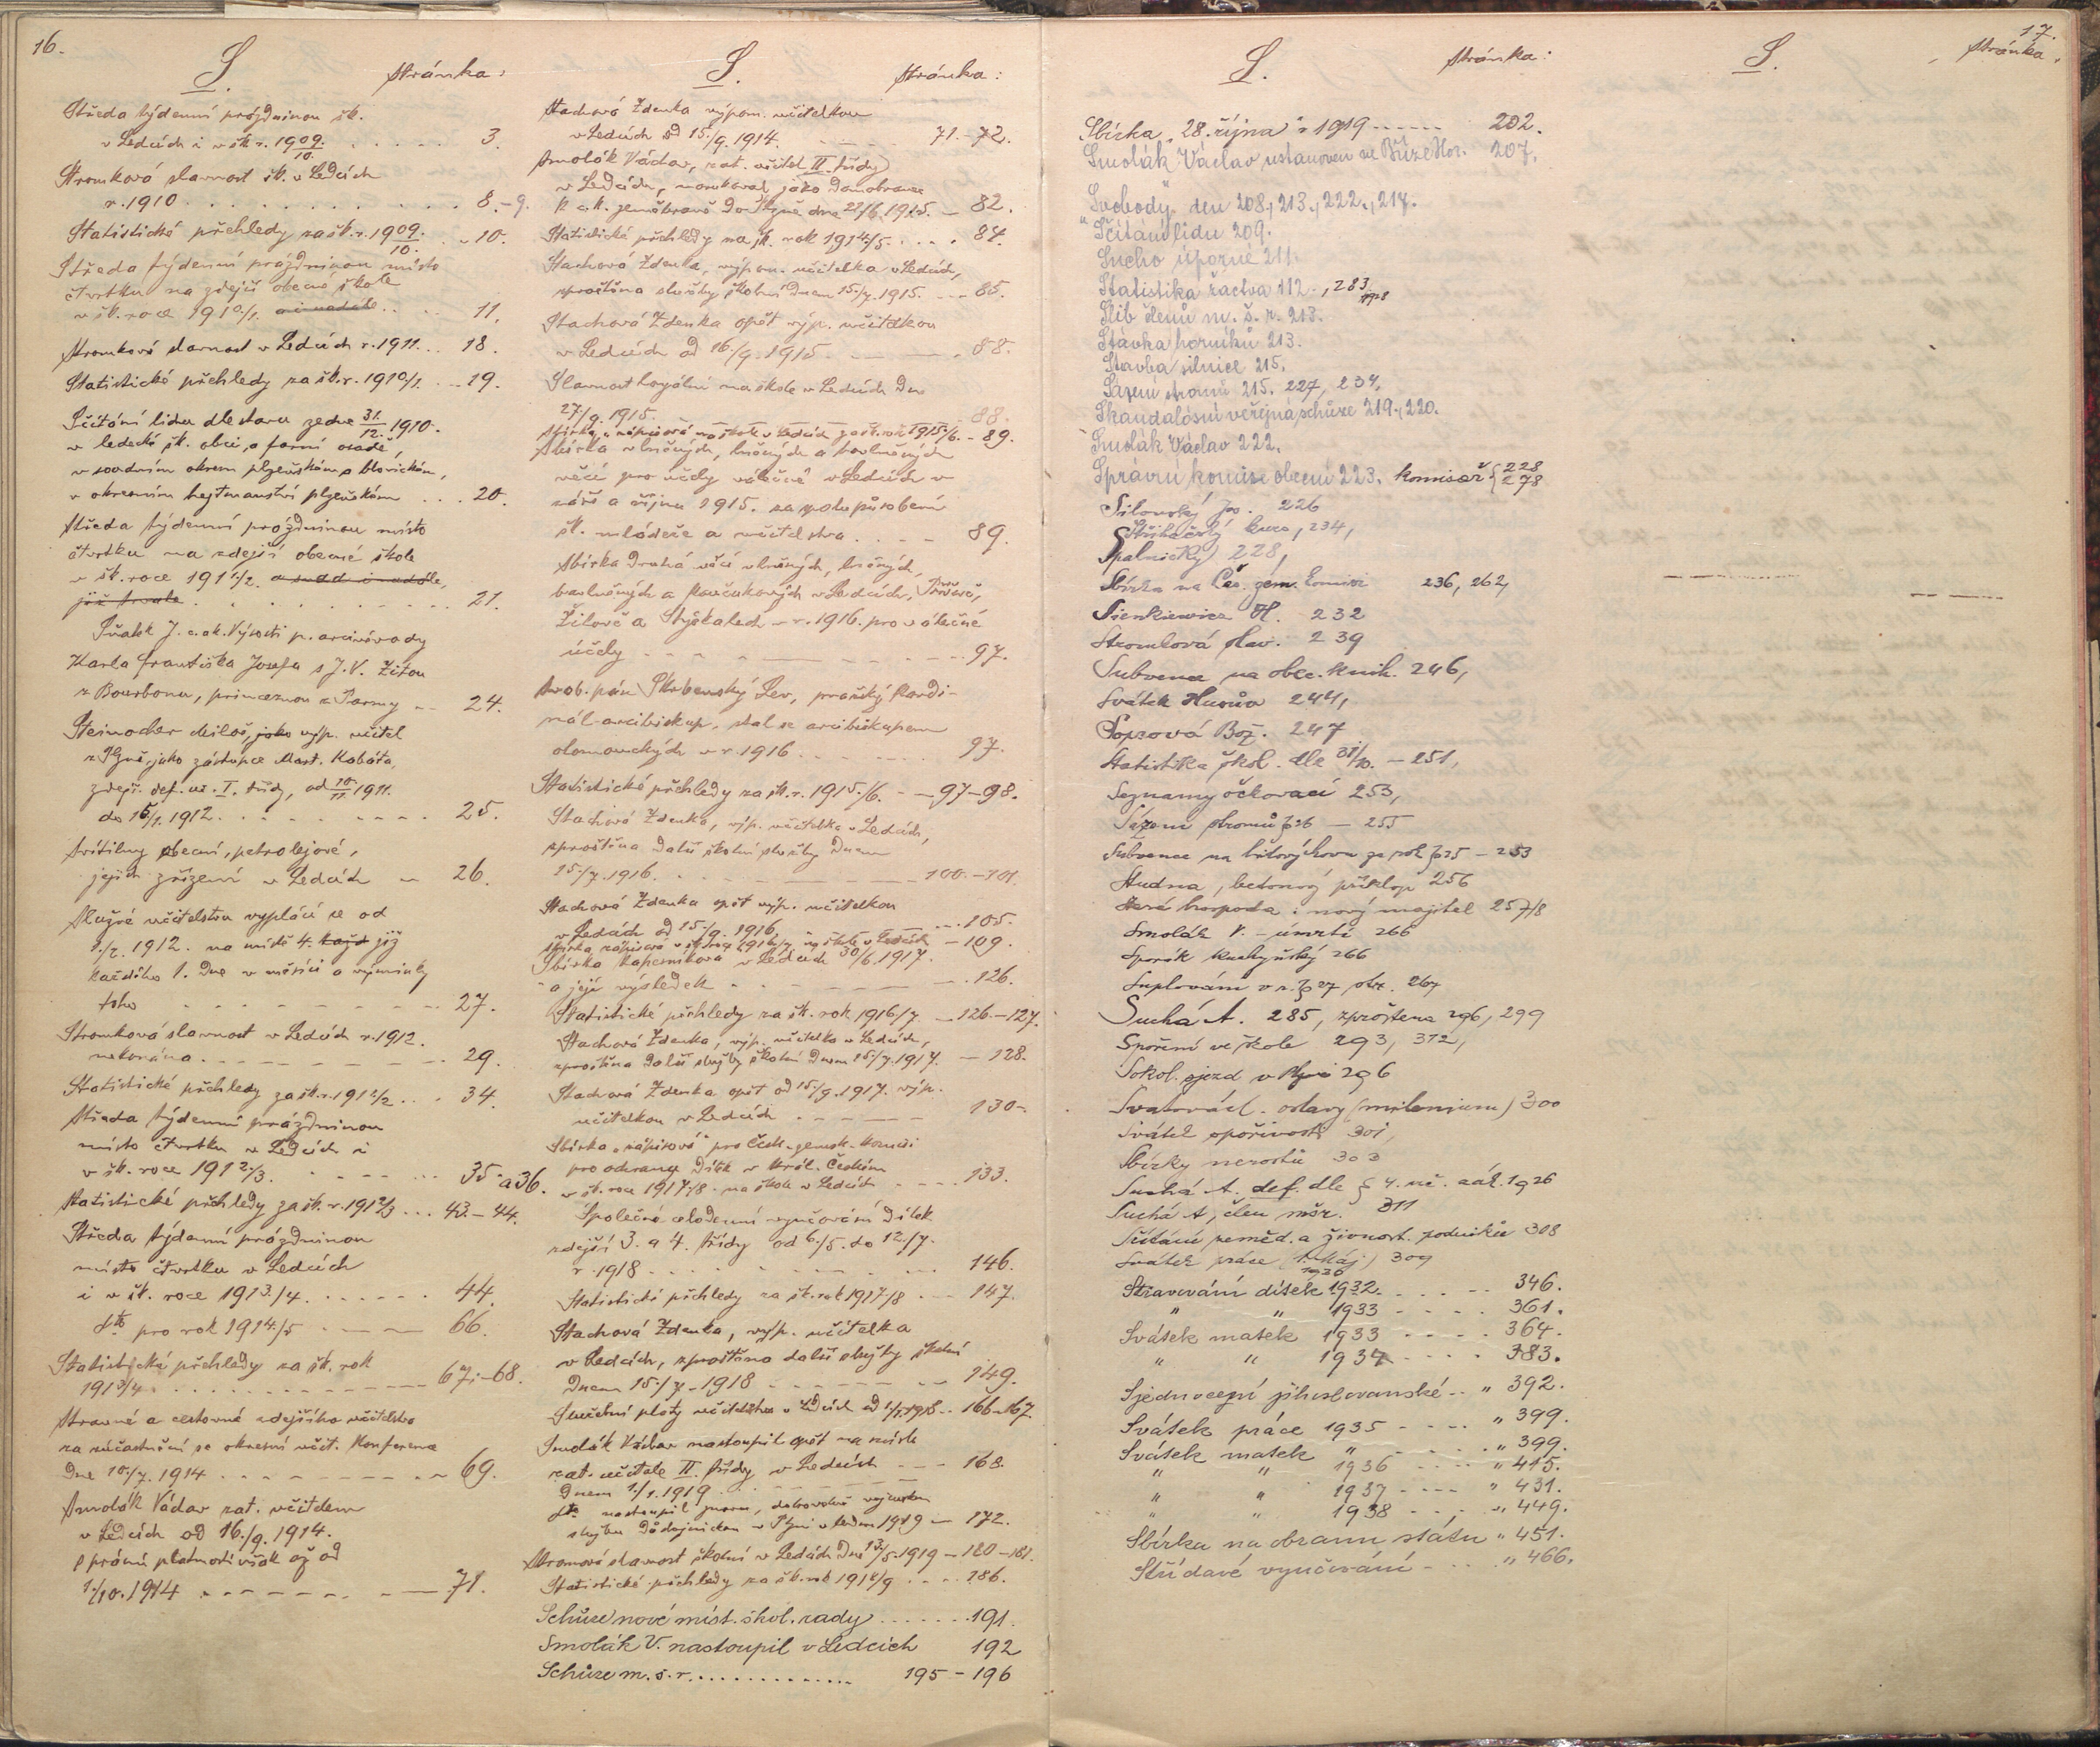 16.
S.
stránka:
Středa týdenní prázdninou šk.
v Ledcích i v šk. r. 1909/10. . . . . . 3.
Stromková slavnost šk. v Ledcích
r. 1910 . . . . . . . . . . 8.-9.
Statistické přehledy za šk. r. 1909/10. . - 10.
Středa týdenní prázdninou místo
čtvrtku na zdejší obecné škole
v šk. roce 1910/1. . . . . 11.
Stromková slavnost v Ledcích r. 1911. . . 18.
Statistické přehledy za šk. r. 1910/1. . - 19.
Sčítání lidu dle stavu ze dne 31/12. 1910.
v ledecké šk. obci, a farní osadě,
v soudním okresu plzeňském a blovickém,
v okresním hejtmanství plzeňském . . . 20.
Středa týdenní prázdninou místo
čtvrtku na zdejší obecné škole
v šk. roce 1911/2. a snad i nadále,
již trvale . . . . . . . . . 21.
Sňatek J. c. a k. Výsosti p. arcivévody
Karla Františka Josefa s J. V. Zitou
z Bourbonu, princeznou z Parmy - - 24.
Steinocher Miloš, jako výp. učitel
z Plzně, jako zástupce Mart. Kabáta,
zdejš. def. uč. I. třídy, od 10/11. 1911.
do 15/1. 1912. . . . . . . . . 25.
Svítilny obecní, petrolejové,
jejich zřízení v Ledcích - 26.
Služné učitelstvu vyplácí se od
1./2. 1912. na místě 4. každ již
každého 1. dne v měsíci a výminky
toho - - - - - - - - - 27.
Stromková slavnost v Ledcích r. 1912.
nekonána. - - - - - - - 29.
Statistické přehledy za šk. r. 1911/2. . . 34.
Středa týdenní prázdninou
místo čtvrtku v Ledcích i
v šk. roce 1912./3. . - - - ... 35 a 36.
Statistické přehledy za šk. r. 1912/3 ... 43.-44.
Středa týdenní prázdninou
místo čtvrtku v Ledcích
i v šk. roce 1913./4. . . . . . . 44.
dto pro rok 1914./5 - - - 66.
Statistické přehledy za šk. rok
1913/4. . . . . . . . . . . 67.-68.
Stravné a cestovné zdejšího učitelstva
za zúčastnění se okresní učit. konference
dne 10./7. 1914 . . . . - - - 69.
Smolák Václav zat. učitelem
v Ledcích od 16./9. 1914.
s právní platností však až od
1./10. 1914 - - - - - - - 71.
S.
stránka:
Stachová Zdenka výpom. učitelkou
v Ledcích od 15./9. 1914. - - - 71.-72.
Smolák Václav, zat. učitel II. třídy
v Ledcích, narukoval jako domobranec
k c. k. zeměbraně do Plzně dne 22/6. 1915. - 82.
Statistické přehledy na šk. rok 1914./5. . . . 84.
Stachová Zdenka, výpom. učitelka v Ledcích,
zproštěna služby školní dnem 15./7. 1915. - - 85.
Stachová Zdenka opět výp. učitelkou
v Ledcích od 16./9. 1915 - - - . 88.
Slavnost loyální na škole v Ledcích dne
27./9. 1915. 88.
Sbírka „nápisová“ na škole v Ledcích za šk. rok 1915/6. - 89.
Sbírka vlněných, lněných a bavlněných
věcí pro účely válečné v Ledcích v
září a říjnu 1915. za spolupůsobení
šk. mládeže a učitelstva . . . - 89.
Sbírka druhá věcí vlněných, lněných,
bavlněných a kaučukových v Ledcích,
Žilově a Stýskalech v r. 1916. pro válečné
účely - - - - - - - - 97.
Svob. pán Skrbenský Lev, pražský kardi-
nál-arcibiskup, stal se arcibiskupem
olomouckým v r. 1916 . . . . . . 97.
Statistické přehledy za šk. r. 1915./6. - - 97-98.
Stachová Zdenka, výp. učitelka v Ledcích,
zproštěna další školní služby dnem
15./7. 1916. - - - - - - 100.-101.
Stachová Zdenka opět výp. učitelkou
v Ledcích od 15./9. 1916. ... 105.
Sbírka nápisová v šk. roce 1916/7 na škole v Ledcích - 109.
Sbírka kaperníková v Ledcích 30/6. 1917.
a její výsledek - - - - - - 126.
Statistické přehledy za šk. rok 1916/7. - 126.-127.
Stachová Zdenka, výp. učitelka v Ledcích,
zproštěna další služby školní dnem 15./7. 1917. - 128.
Stachová Zdenka opět od 15./9. 1917. výp.
učitelkou v Ledcích - - - - - 130.
Sbírka „nápisová“ pro Česk. zemsk. komisi
pro ochranu dítek v král. Českém
v šk. roce 1917./8. na škole v Ledcích - - - 133.
Společné celodenní vyučování dítek
zdejší 3. a 4. třídy od 6./5. do 12./7.
r. 1918 . . . - - - - ... 146.
Statistické přehledy za šk. rok 1917/8 . - - 147.
Stachová Zdenka, výp. učitelka
v Ledcích, zproštěna další služby školní
dnem 15./7. 1918 - - - - - - 149.
Služební platy učitelstva v Ledcích od 1./1. 1918. . 166-167.
Smolák Václav nastoupil opět na místo
zat. učitele II. třídy v Ledcích - - - 168.
dnem 1./1. 1919. - - - -
dto nastoupil znovu, dobrovolně vojenskou
službu důstojnickou v Plzni v lednu 1919 - 172.
Stromová slavnost školní v Ledcích dne 13/5. 1919 - 180-181.
Statistické přehledy za šk. rok 1918/9 . . . . 186.
Schůze nové míst. škol. rady . . . . . . . 191.
Smolák V. nastoupil v Ledcích 192
Schůze m. š. r. . . . . . . . . . . . . . 195-196
S.
stránka:
Sbírka „28. října“ r 1919 - - - - - 202.
Smolák Václav ustanoven ve Bříze Hor. 207.
„Svobody“ den 208., 213., 222., 217.
Sčítání lidu 209.
Sucho úporné 211.
Statistika žactva 112., 283 1928
Slib členů m. š. r. 213.
Stávka horníků 213.
Stavba silnice 215.
Sázení stromů 215. 227, 234,
Skandalósní veřejná schůze 219., 220.
Smolák Václav 222.
Správní komise obecní 223. komisař { 228 278
Silovský Jos. 226
Střihačský kurs, 234,
Spalničky 228,
Sbírka na Čes. zem. komisi 236, 262,
Sienkiewicz H. 232
Stromková slav. 239
Subvence na obec. knih. 246,
Svátek Husův 244,
Soprová Bož. 247
Statistika škol. dle 31/10. - 251,
Seznamy očkovací 253,
Sázení stromů 26 - 255
Subvence na lidovýchovu za rok 25 - 253
Studna, betonový příklop 256
Stará hospoda: nový majitel 257/8
Smolák V. - úmrtí 266
Sporák kuchyňský 266
Suplování v r. 27 str. 267
Suchá A. 285, zproštěna 296, 299
Spoření ve škole 293, 312,
Sokol. sjezd v Plzni 296
Svatovácl. oslavy (milenium) 300
Svátek spořivosti 301,
Sbírky nerostů 303
Suchá A. def. dle § 4. uč. zák. 1926
Suchá A, člen mšr. 311
Sčítání zeměd. a živnost. podniků 308
Svátek práce (1. Máj) 309
1936
Stravování dítek 1932. . . . - - 346.
„ „ 1933 - - - - 361.
Svátek matek 1933 - - - - 364.
„ „ 1934 - - - - 383.
Sjednocení jihoslovanské - - „ 392.
Svátek práce 1935 - - - - „ 399.
Svátek matek „ - - - - „ 399.
„ „ 1936 - - - - „ 415.
„ „ 1937 - - - - „ 431.
„ „ 1938 - - - - „ 449.
Sbírka na obranu státu „ 451.
Střídavé vyučování - . . . „ 466.
17.
S.
stránka.